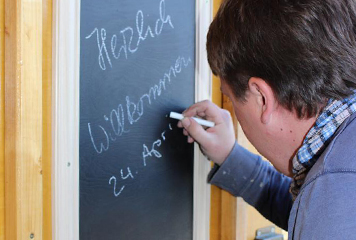 Herzlich
Willkommen
24. April